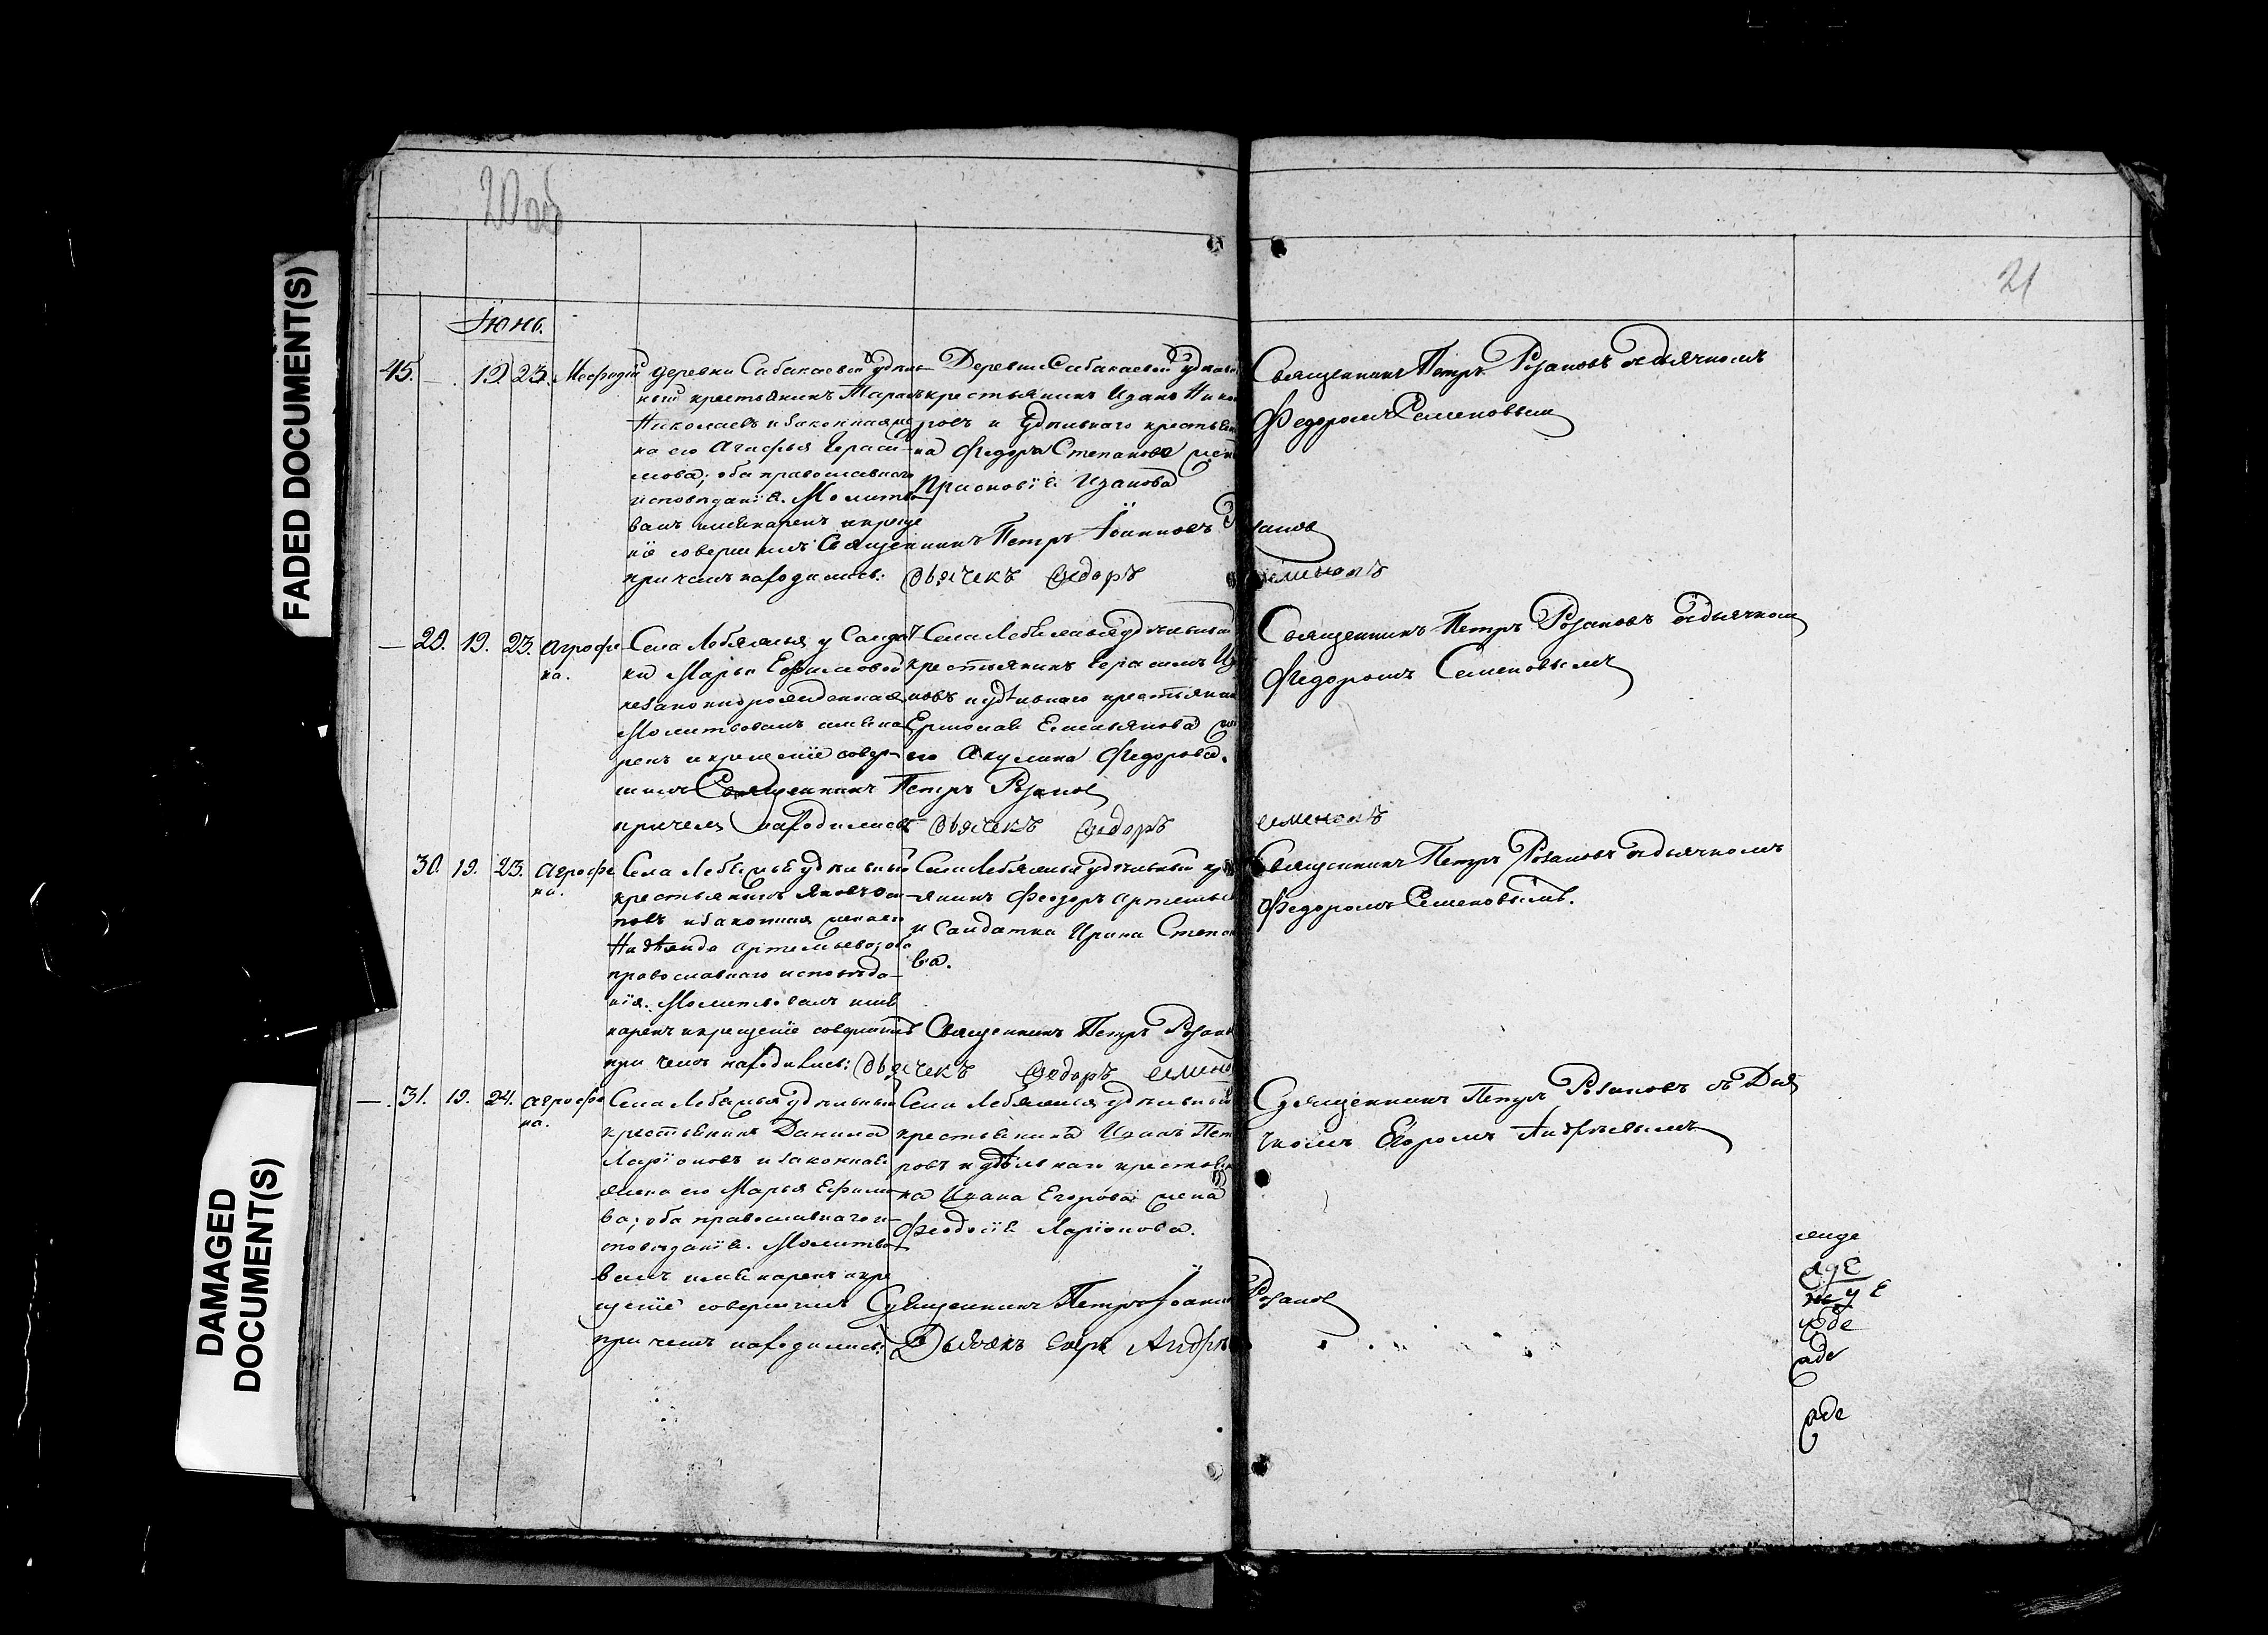 20 об
21
FADED DOCUMENT(S)
DAMAGED
DOCUMENT(S)
Іюнь.
45. — 19. 23. Меѳодій
деревни Сабакаевой удѣль-
ный крестьянинъ Тарасъ
Николаевъ и законная же
на его Агафья Гераси-
мова; оба православнаго
исповѣданія. Молитво
валъ имя нарекъ и креще
ніе совершилъ Священникъ Петръ Іоанновъ Розановъ
при чемъ находились: Дьячекъ Ѳедоръ Семеновъ
Деревни Сабакаевой удѣльн
крестьянинъ Иванъ Ники
ровъ и удѣльнаго крестьяни
на Ѳедора Степанова жена
Прасковія Иванова
Священникъ Петръ Розановъ съ дьячкомъ
Ѳедоромъ Семеновымъ
— 29. 19. 23. Агрофе
на.
Села Лебяжья у Солдат
ки Марьи Ефимовой
незаконнорожденная
Молитвовалъ имя на
рекъ и крещеніе совер-
шилъ Священникъ Петръ Розановъ
при чемъ находились Дьячекъ Ѳедоръ Семеновъ
Села Лебяжья удѣльный
крестьянинъ Герасимъ Ива
новъ и удѣльнаго крестьянина
Ермолая Емельянова жена
его Акулина Ѳедорова.
Священникъ Петръ Розановъ съ дьячкомъ
Ѳедоромъ Семеновымъ
30. 19. 23. Агрофе
на.
Села Лебяжья удѣльный
крестьянинъ Яковъ Оси
повъ и законная жена его
Надежда Артемьева, оба
православнаго исповѣда-
нія. Молитвовалъ имя
нарекъ и крещеніе совершилъ Священникъ Петръ Розановъ
при чемъ находились: Дьячекъ Ѳедоръ Семенов
Села Лебяжья удѣльный кре
янинъ Ѳеодоръ Артемьев
и Солдатка Ирина Степано
ва.
Священникъ Петръ Розановъ съ дьячкомъ
Ѳедоромъ Семеновымъ.
— 31. 19. 24. Агрофе
на.
Села Лебяжья удѣльный
крестьянинъ Данила
Ларіоновъ и законная
жена его Марья Ефимо
ва; оба православнаго и-
сповѣданія. Молитво
валъ имя нарекъ и кре
щеніе совершилъ Священникъ Петръ Іоанновъ Розановъ
при чемъ находились: Дьячекъ Егоръ Андрѣ
Села Лебяжья удѣльный
крестьянина Иванъ Пет
ровъ и удѣльнаго крестьяни
на Ивана Егорова жена
Ѳеодосія Ларіонова.
Священникъ Петръ Розановъ съ Дья
чкомъ Егоромъ Андрѣевымъ